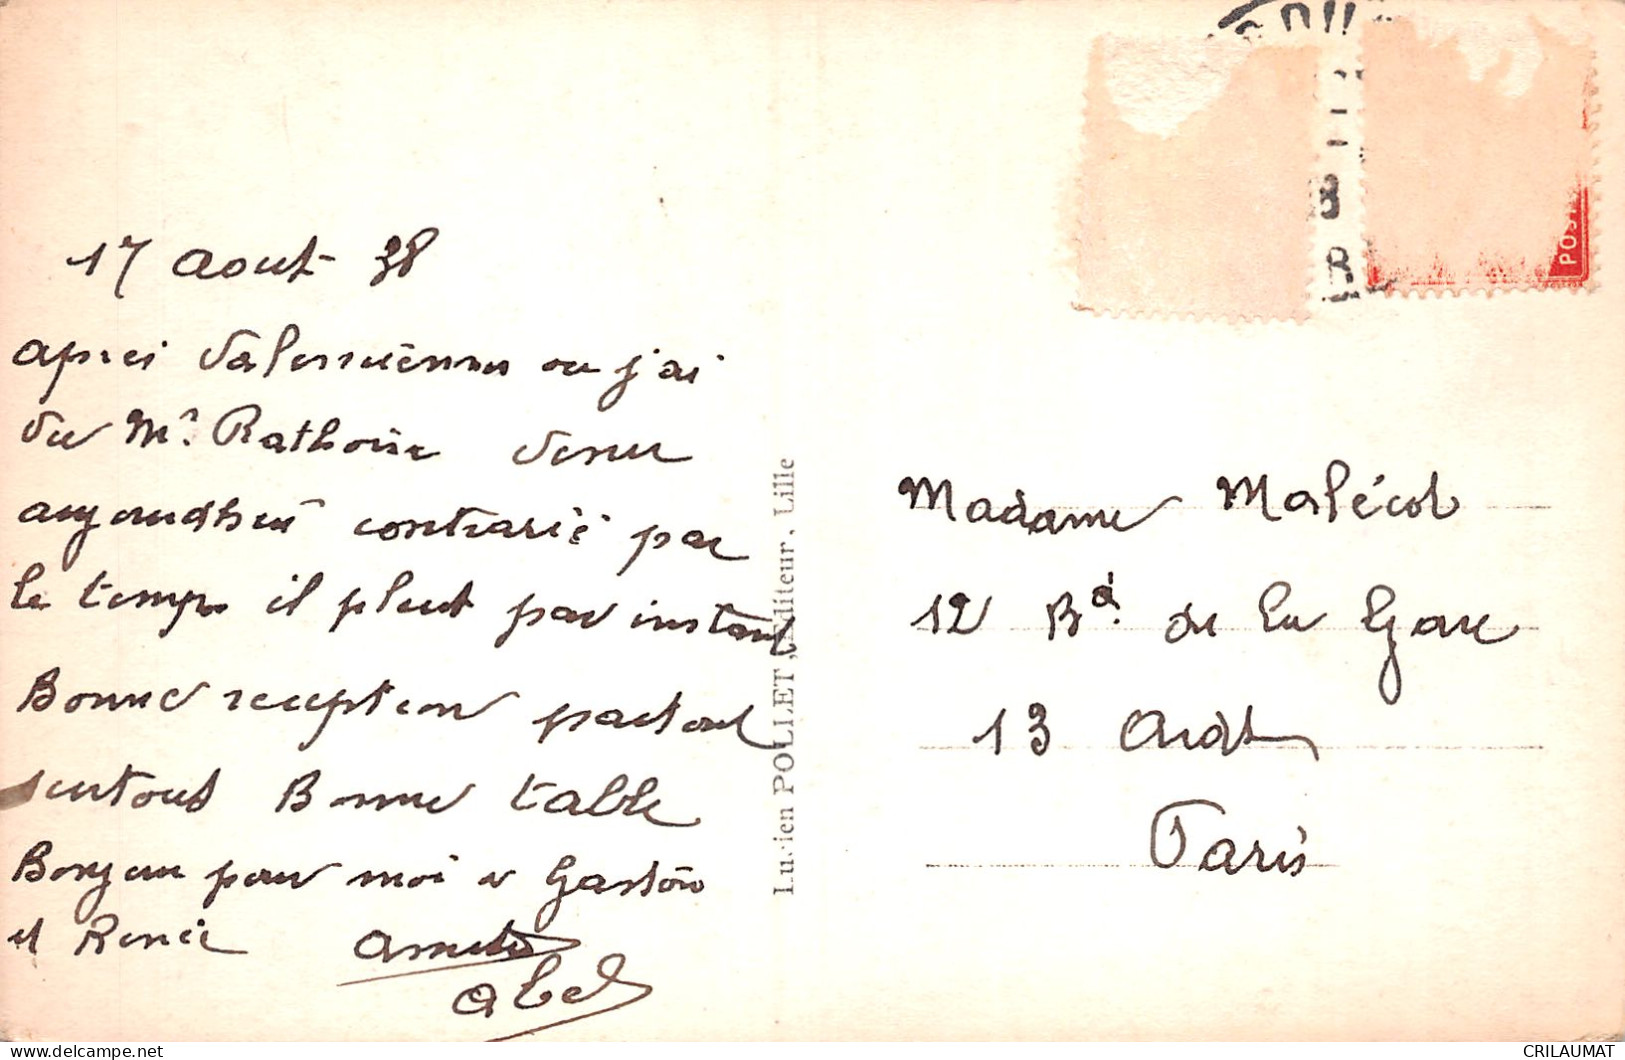 17 Aout 38
après Valenciennes ou j'ai
vu Mr. Rathoise venu
aujourdhui contrarié par
le temps il pleut par instant
Bonne reception partout
surtout Bonne table
Bonjour pour moi a Gaston
et Renée
Abel
Lucien POLLET, Editeur, Lille
POST
Madame Malécot
12 Bd. de la Gare
13 Ardt
Paris
CRILAUMAT